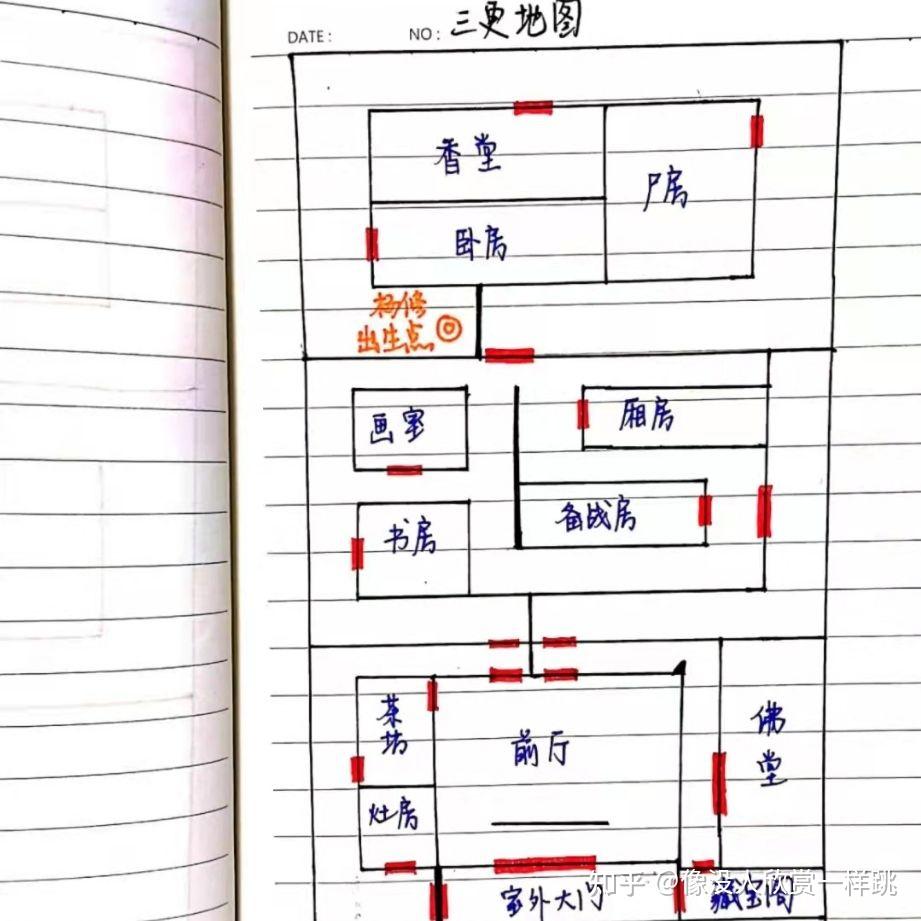 DATE: NO: 三更地图
香堂
尸房
卧房
杨修
出生点
画室
厢房
备战房
书房
茶坊
前厅
佛堂
灶房
家外大门
藏宝间
知乎 @像没人欣赏一样跳